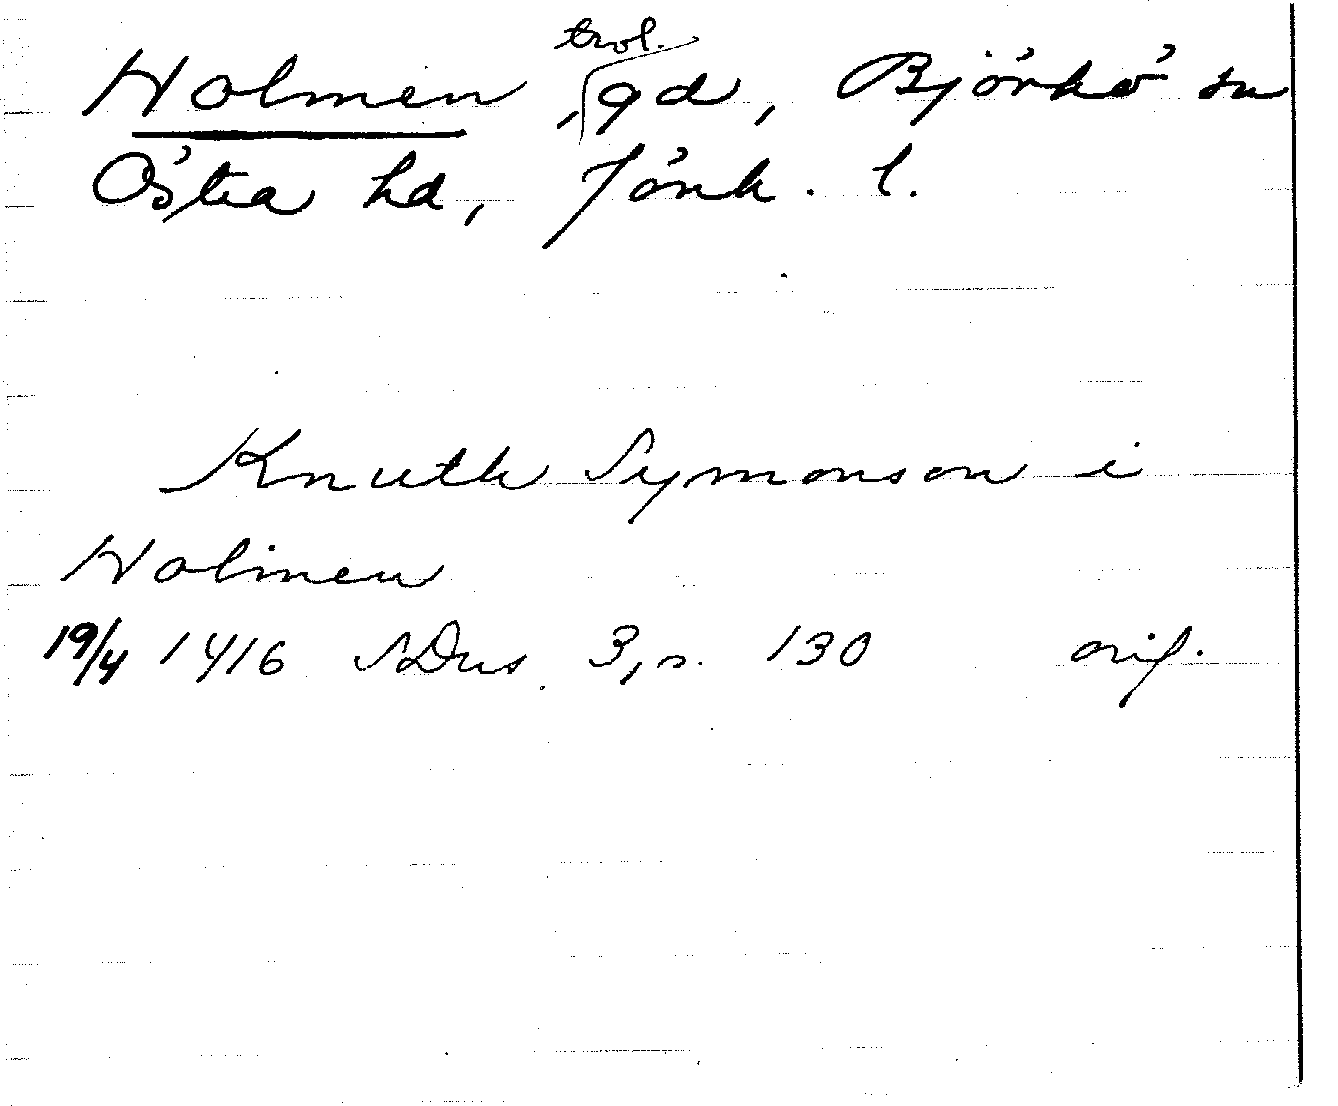 Holmen, trol. gd, Björkö sn
Östra hd, Jönk. l.
Knuth Symonson i
Holmen
19/4 1416 SDns 3, s. 130 orig.